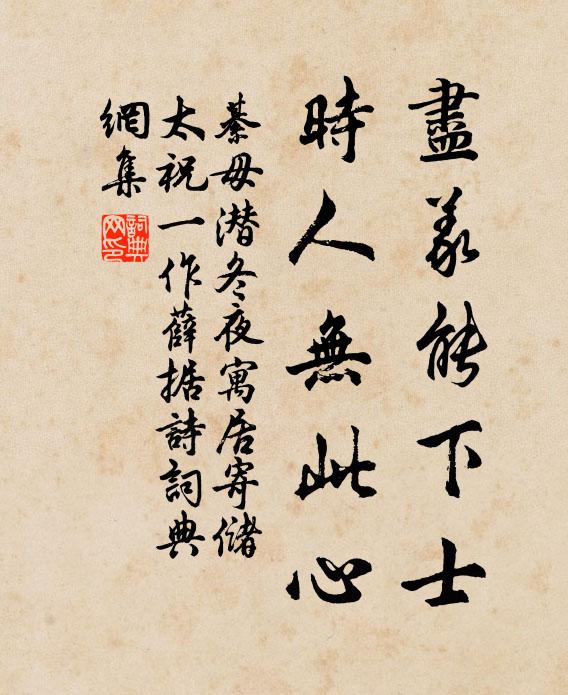 盡義能下士
時人無此心
綦毋潛冬夜寓居寄儲
太祝一作薛据詩詞典
網集
詞典
网印